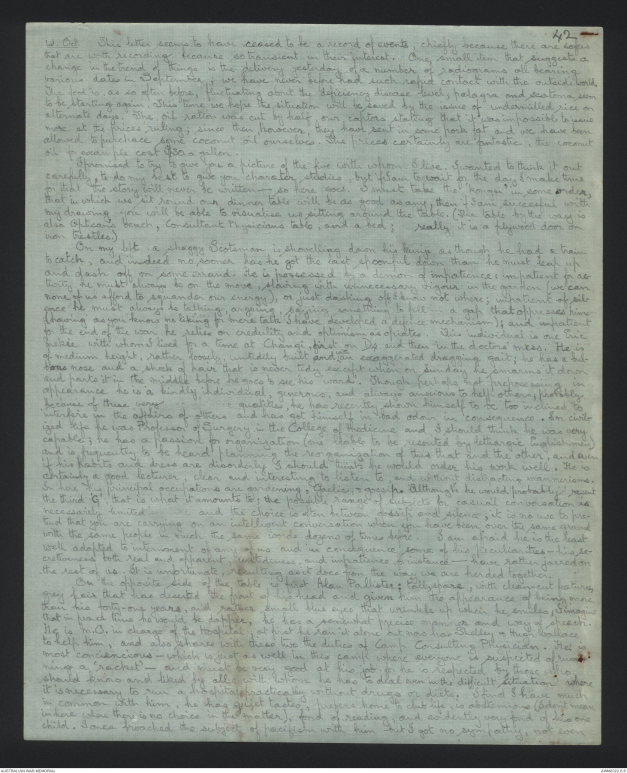 42
W. Oct This letter seems to have ceased to be a record of events, chiefly because there are so few
that are worth recording because so transient in their interest. One small item that suggests a
change in the trend of things is the delivery yesterday of a number of radiograms all bearing
various dates in September; we have never before had such rapid contact with the outside world.
The food is, as so often before, fluctuating about the deficiency disease level, pelagra and scotoma seem
to be starting again. This time we hope the situation will be saved by the issue of undermilled rice on
alternate days. The oil ration was cut by half, our captors stating that it was impossible to issue
more at the prices ruling; since then however, they have sent in some pork fat and we have been
allowed to purchase some coconut oil ourselves. The prices certainly are fantastic. the coconut
oil for example cost
I promised to try to give you a picture of the five with whom I live. I wanted to think it out
carefully, to do my best to give you character studies, but if I am to wait for the day I make time
for that the story will never be written — so here goes. I must take the "kongsi" in some order,
that in which we sit round our dinner table will be as good as any, then if I am successful with
my drawing you will be able to visualise us sitting around the table. (The table by the way is
also Optician's bench, Consultant Physicians table, and a bed; really it is a plywood door on
iron trestles)
On my left a shaggy Scotsman is shovelling down his kanji as though he had a train
to catch, and indeed no sooner has he got the last spoonful down than he must leap up
and dash off on some errand. He is possessed by a demon of impatience: impatient for ac-
tivity he must always be on the move, slaving with unnecessary vigour in the garden (we can
none of us afford to squander our energy), or just dashing off I know not where; impatient of sil-
ence he must always be talking, arguing, saying something to fill a gap that oppresses him
(knowing as you know no liking for mere talk I have developed a defence mechanism); and impatient
for the end of the war, he relies on credulity and optimism as opiates. This individual is one
with whom I lived for a time at Changi, first in and then in the doctors mess. He is
of medium height, rather loosely, untidily built and an exaggerated dragging gait; he has a bul-
bous nose and a shock of hair that is never tidy except when on Sunday he smarms it down
and parts it in the middle before he goes to see his ward. Though perhaps not prepossessing in
appearance he is a kindly individual, generous, and always anxious to help others; probably
because of these very qualities he has recently shown himself to be too inclined to
interfere in the affairs of others and has got himself in bad odour in consequence. In civil-
ized life he was Professor of Surgery in the College of Medicine and I should think he was very
capable; he has a passion for organization (one liable to be resented by lethargic Englishmen)
and is frequently to be heard planning the reorganization of this that and the other, and even
if his habits and dress are disorderly I should think he would order his work well. He is
certainly a good lecturer, clear and interesting to listen to, and without distracting mannerisms.
In here his principal occupations are gardening, Chelsea, & gossip. Although he would probably resent
the third 'G' that is what it amounts to; the possible range of dinner casual conversation is
necessarily limited and the choice is often between gossip and silence; it is no use to pre-
tend that you are carrying on an intelligent conversation when you have been over the same ground
with the same people in much the same words dozens of times before. I am afraid he is the least
well adapted to internment of any of us and in consequence some of his peculiarities — his se-
cretiveness both real and apparent, untidiness, and impatience for instance — have rather jarred on
the rest of us.
On the opposite side of the table is first Alan Pallister; tall, spare, with clearcut feature,
grey hair that has deserted the front of his head and given him the appearance of being more
than his forty-one years, and rather small blue eyes that wrinkle up when he smiles, I imagine
that in peace time he would be dapper, he has a somewhat precise manner and way of speech.
He is M.O. in charge of the Hospital; at first he ran it alone but now has Shelley & Hugh Wallace
to help him, and also shares with these two the duties of Camp Consulting Physician. He is
most conscientious — which is just as well in this camp where everyone is suspected of run-
ning a 'racket' — and must be very good at his job, he is respected by those who
should know and liked by all with whom he has to deal even in the difficult situation where
it is necessary to run a hospital practically without drugs or diets. I find I have much
in common with him, he has quiet tastes, prefers home to club life, is abstemious (I don't mean
in here where there is no choice in the matter), fond of reading, and evidently very fond of his one
child. I once broached the subject of pacifism with him but I got no sympathy, not even
AUSTRALIAN WAR MEMORIAL